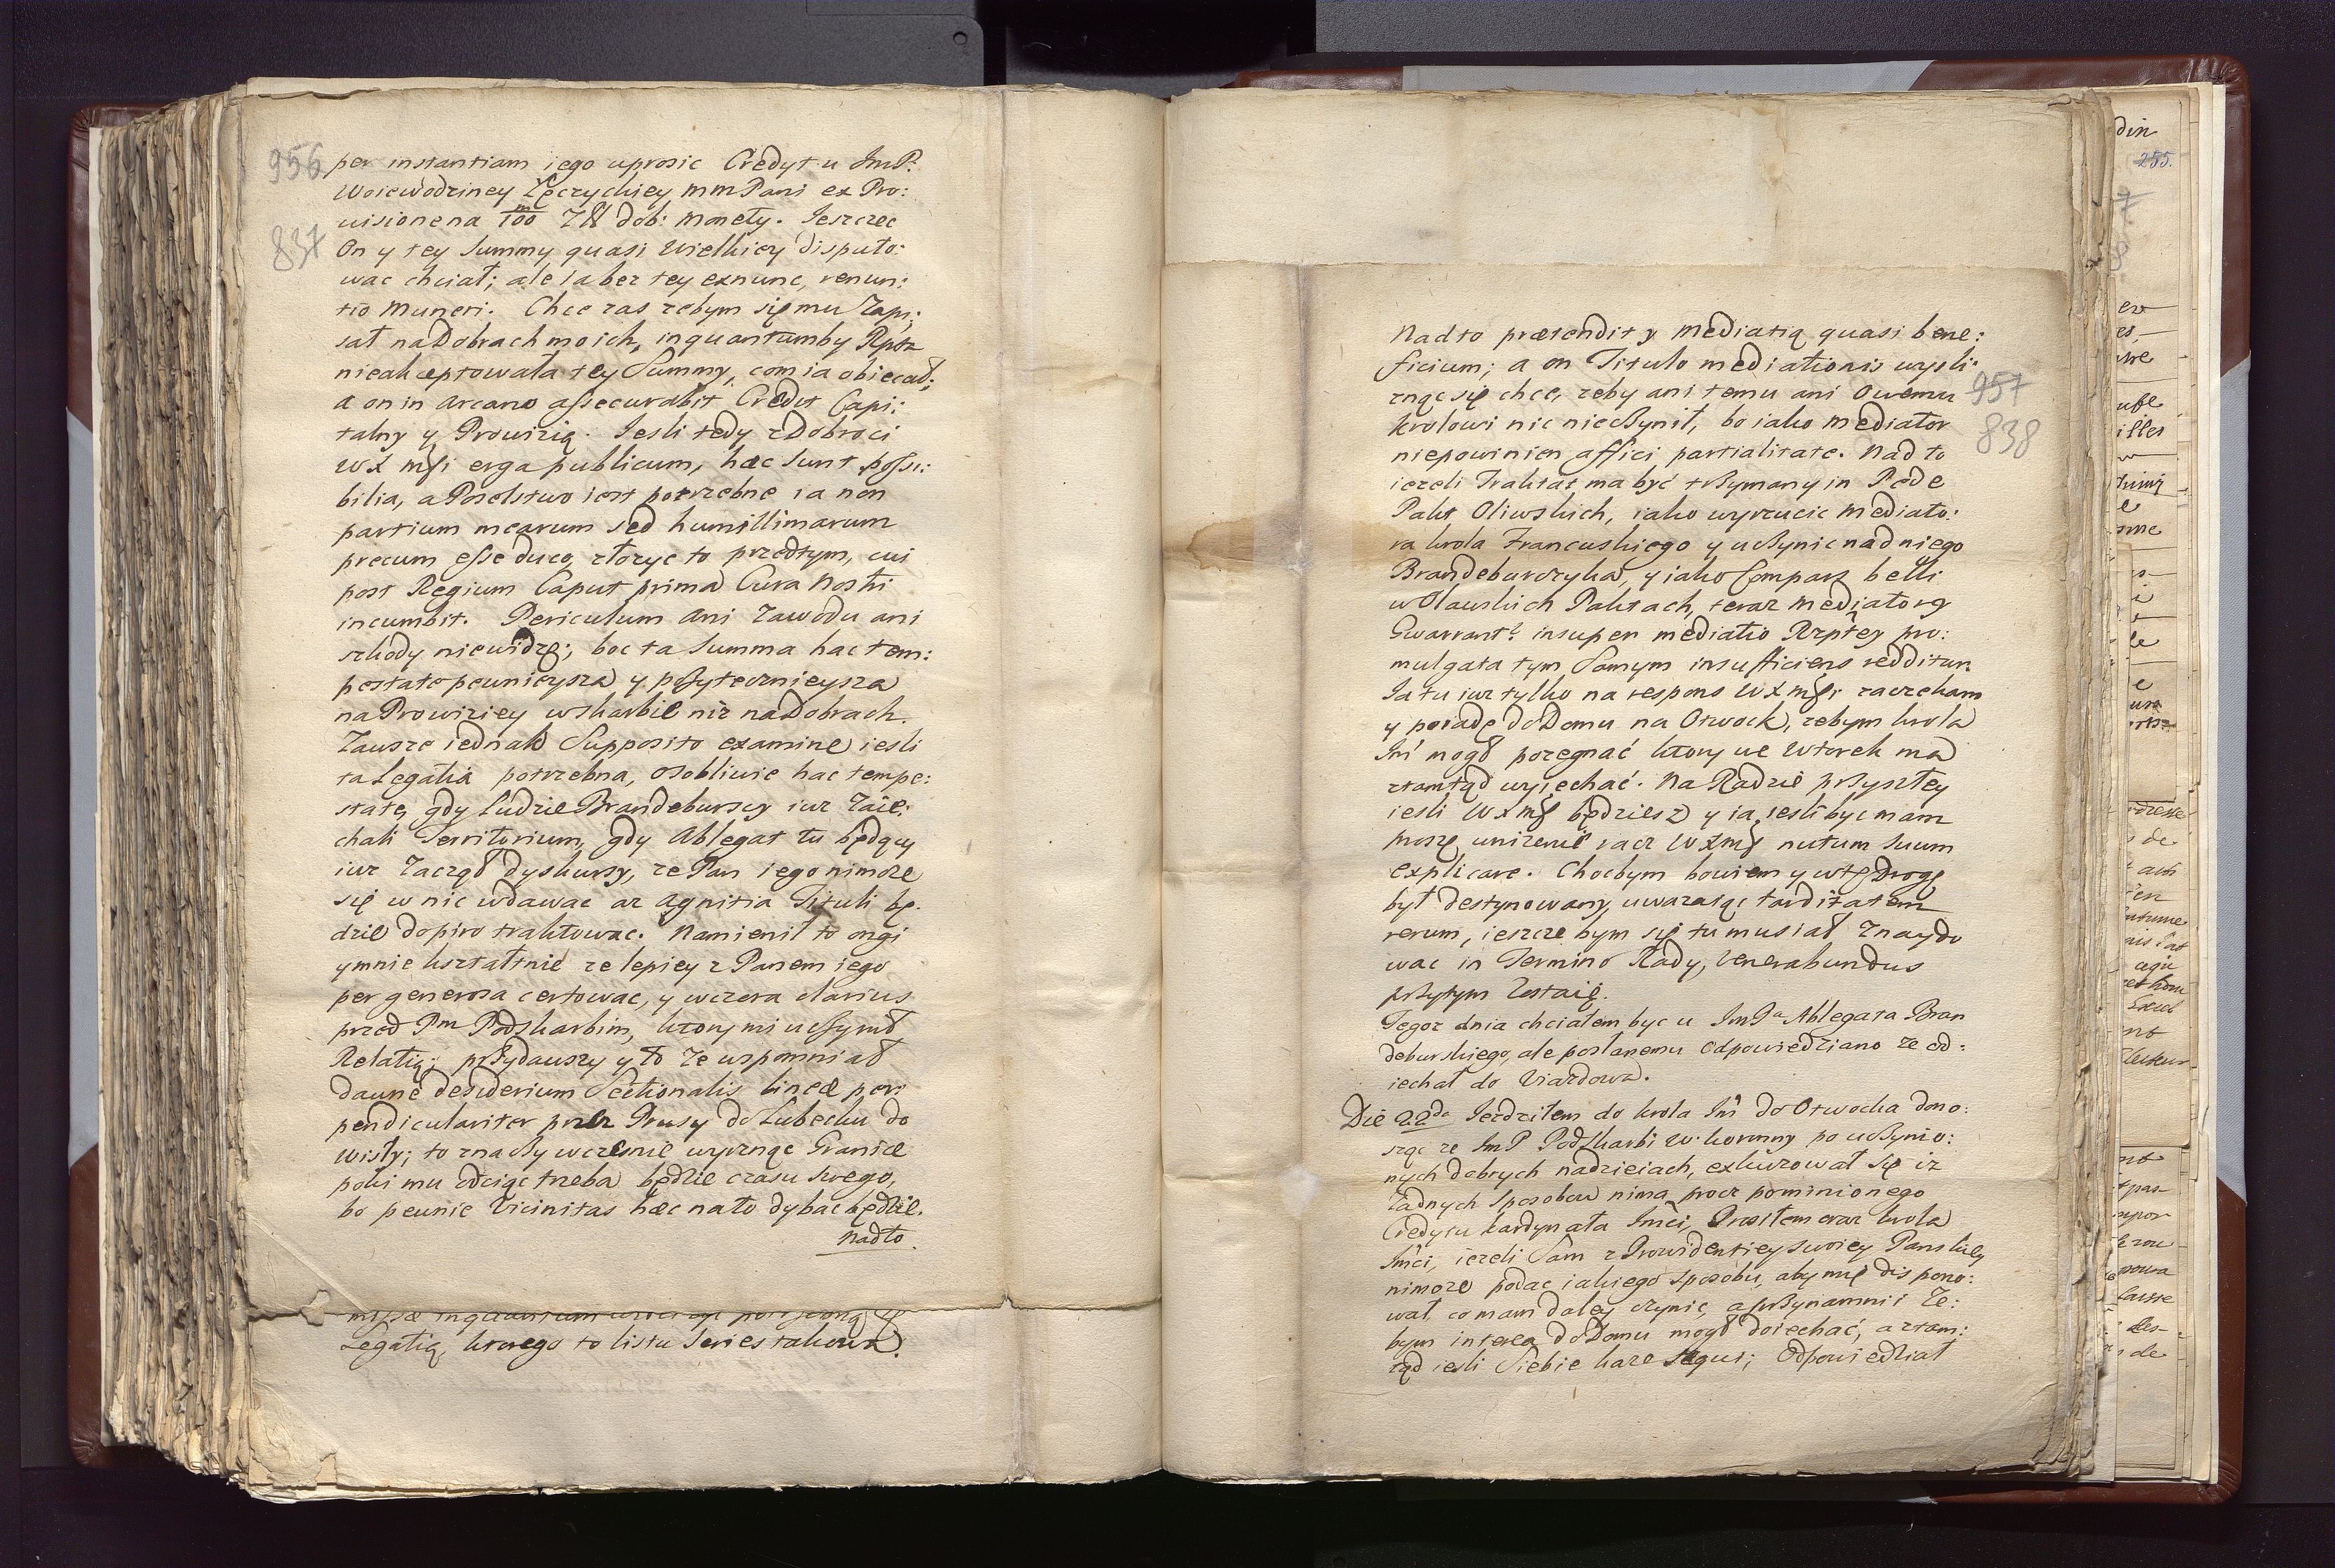 956
837
per instantiam iego uprosic Credyt u ImP:
Woiewodziney Łęczyckiey mmPani ex Pro:
uisione na 100 dob: Monety. Ieszcze
On y tey Summy quasi Wielkiey disputo:
wac chciał; ale ia bez tey exnunc, renun:
tio Muneri. Chce zas zebym się mu Zapi:
sał naDobrach moich, inquantumby Rptz
nieakceptowała tey Summy, com ia obiecał;
a on in arcano assecurabit Credit Capi:
talny y Prowizią. Iesli tedy zDobroci
WX mśi erga publicum, hæc sunt possi:
bilia, aPoselstwo iest potrzebne ia non
partium mearum sed humillimarum
precum esse duco, złozyc to przedtym, cui
post Regium Caput prima Cura Nostri
incumbit. Periculum ani Zawodu ani
szkody niewidzę; bo ta Summa hac tem:
pestate pewnieysza y pożytecznieysza
naProwiziey wskarbie niz naDobrach.
Zawsze iednak Supposito examine iesli
ta Legatia potrzebna, osobliwie hac tempe:
state, gdy ludzie Brandeburscy iuz Zaie:
chali Territorium, gdy Ablegat tu będący
iuz Zaczął dyskursy, ze Pan iego nimoze
się w nic wdawac az agnitia Tituli bę.
dzie dopiro traktowac. Namienił to onegi
ymnie kształtnie ze lepiey z Panem iego
per generosa certowac, y wczera clarius
przed Pm Podskarbim, ktory mi uczynił
Relatią; przydawszy y to ze wspomniał
dawne desiderium Sectionalis lineæ per:
pendiculariter przez Prusy do Lubecku do
Wisły; to znaczy wczesnie uprznąc Granice
poki mu odciąc trzeba będzie czasu swego,
bo pewnie Vicinitas hæc nato dybac będzie.
Nadto.
Legatią, ktorego to listu Series takowa.
957
838
Nadto prætendit y Mediatią quasi bene:
ficium; a on Titulo mediationis wysli:
znąc się chce, zeby ani temu ani Owemu
krolowi nic nieczynił, bo iako Mediator
niepowinien affici partialitate. Nad to
iezeli Traktat ma być trzymany in Pede
Pakt Oliwskich, iako wyrzucic Mediato:
ra krola Francuskiego y uczynic nad niego
Brandeburczyka, y iako Compars belli
w Oliwskich Paktach, teraz Mediatorę
Gwarrant: insuper mediatio Rzptey pro:
mulgata tym Samym insufficiens redditur
Ia tu iuz tylko na respons WXmśi zaczekam
y poiadę doDomu na Otwock, zebym krola
Im mogł pozegnać ktory we Wtorek ma
ztamtąd wyiechać. Na Radzie przyszłey
iesli WXmś będziesz y ia iesli byc mam
proszę, unizenie racz WXmś nutum suum
explicare. Chocbym bowiem y w tę Drogę
był destynowany, uwazaiąc tarditatem
rerum, ieszcze bym się tu musiał Znaydo
wac in Termino Rady, Venerabundus
przytym Zostaię.
Tegoz dnia chciałem byc u ImPa Ablegata Bran
deburskiego, ale posłanemu odpowiedziano ze od:
iechał do Viazdowa.
Die 22da Iezdziłem do krola Im do Otwocka dono:
sząc ze ImP Podskarbi W. koronny po uczynio:
nych dobrych nadzieiach, exkuzował się iz
Zadnych sposobow nima procz pominionego
Credytu kardynała Imci, Prosiłem oraz krola
Imci, iezeli Sam z Prowidentiey swoiey Panskiey
nimoze podac iakiego sposobu, aby mię dispono:
wał, co mam daley czynic, a przynamnie Ze:
bym interea doDomu mogł doiechać, a ztam:
tąd iesli Siebie kaze sequi; Odpowiedział
255.